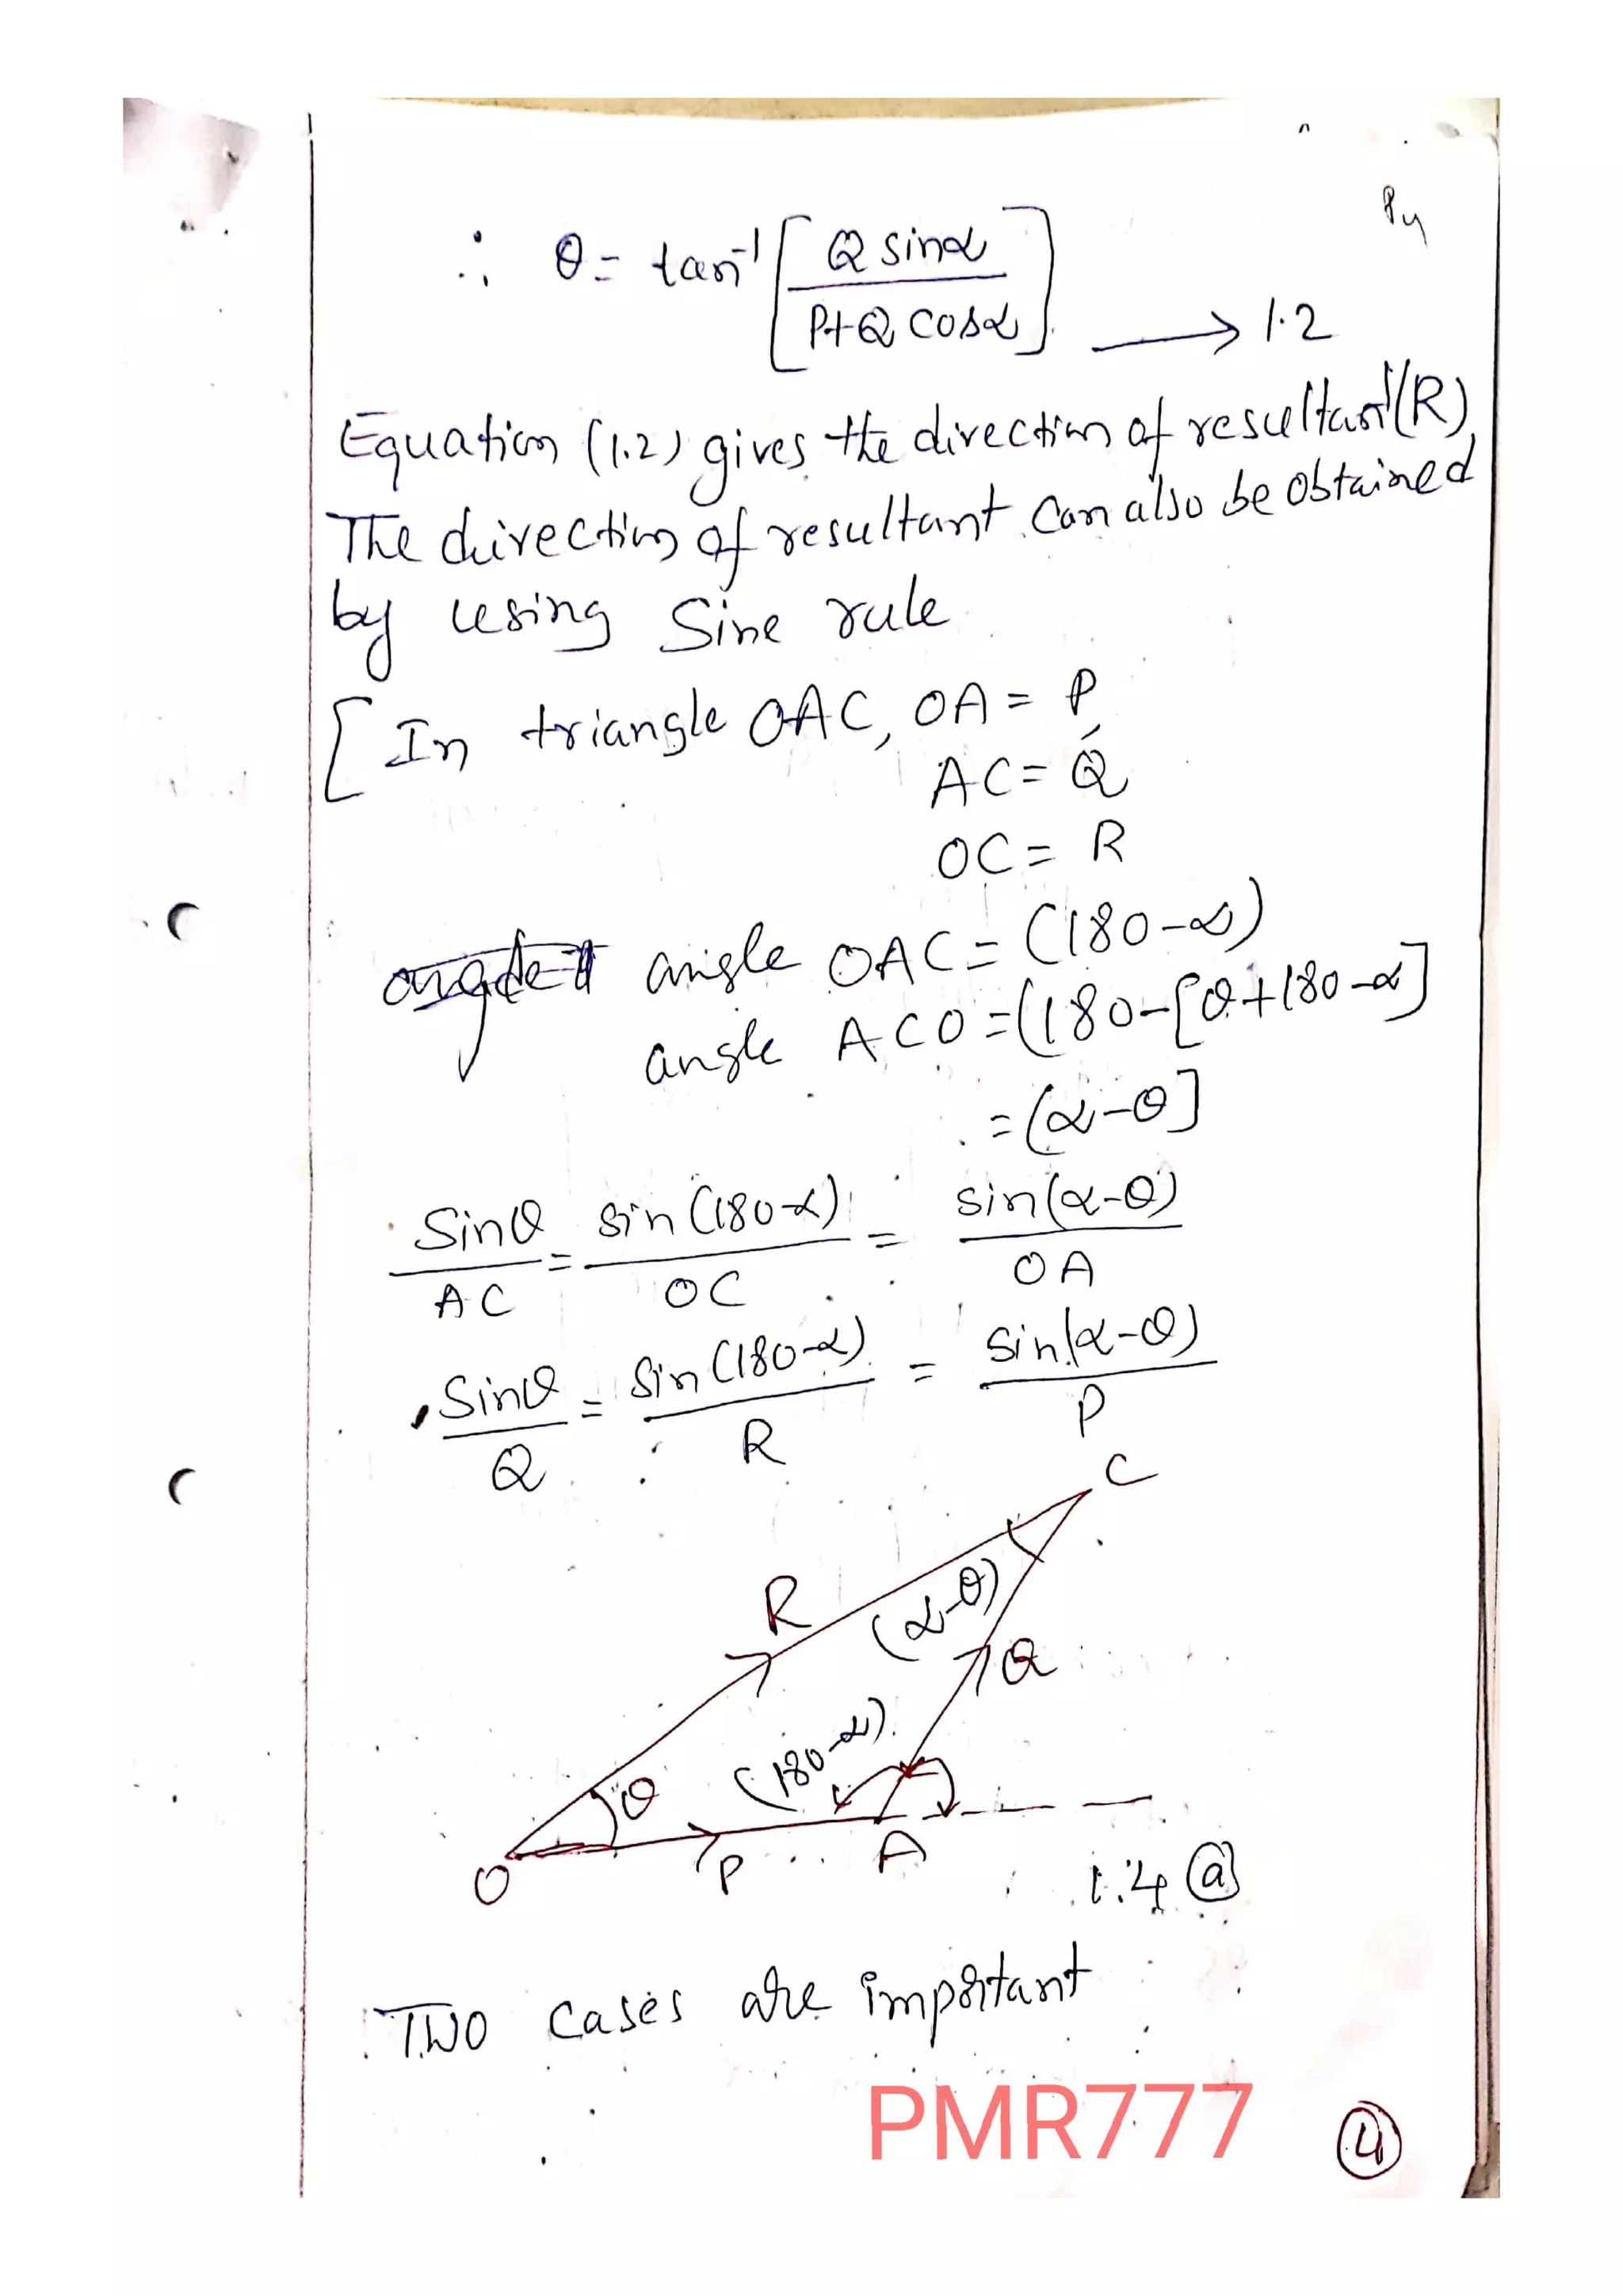 P4
∴ θ = tan⁻¹ [ Q sinα / P+Q cosα ] → 1.2
Equation (1.2) gives the direction of resultant (R),
The direction of resultant can also be obtained
by using Sine rule
[ In triangle OAC, OA = P
AC = Q
OC = R
angle OAC = (180-α)
angle ACO = (180-[θ+180-α]
= (α-θ]
Sinθ / AC = sin (180-α) / OC = sin(α-θ) / OA
Sinθ / Q = Sin (180-α) / R = Sin(α-θ) / P
C
R
(α-θ)
Q
(180-α)
θ
O
P
A
1.4 (a)
TWO cases are important
PMR777
4